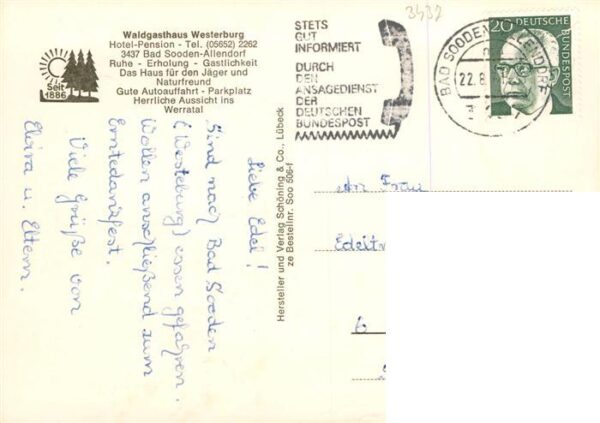 Waldgasthaus Westerburg
Hotel-Pension - Tel. (05652) 2262
3437 Bad Sooden-Allendorf
Ruhe - Erholung - Gastlichkeit
Das Haus für den Jäger und
Naturfreund
Gute Autoauffahrt - Parkplatz
Herrliche Aussicht ins
Werratal
Seit
1886
STETS
GUT
INFORMIERT
DURCH
DEN
ANSAGEDIENST
DER
DEUTSCHEN
BUNDESPOST
3437
BAD SOODEN-ALLENDORF
22.8
20 DEUTSCHE
BUNDESPOST
Liebe Edel!
Sind nach Bad Sooden
(Westeburg) essen gefahren.
Wollen anschließend zum
Erntedankfest.
Viele Grüße von
Elvira u. Eltern.
Hersteller und Verlag Schöning & Co., Lübeck
ze Bestellnr. Soo 506-f
An Frau